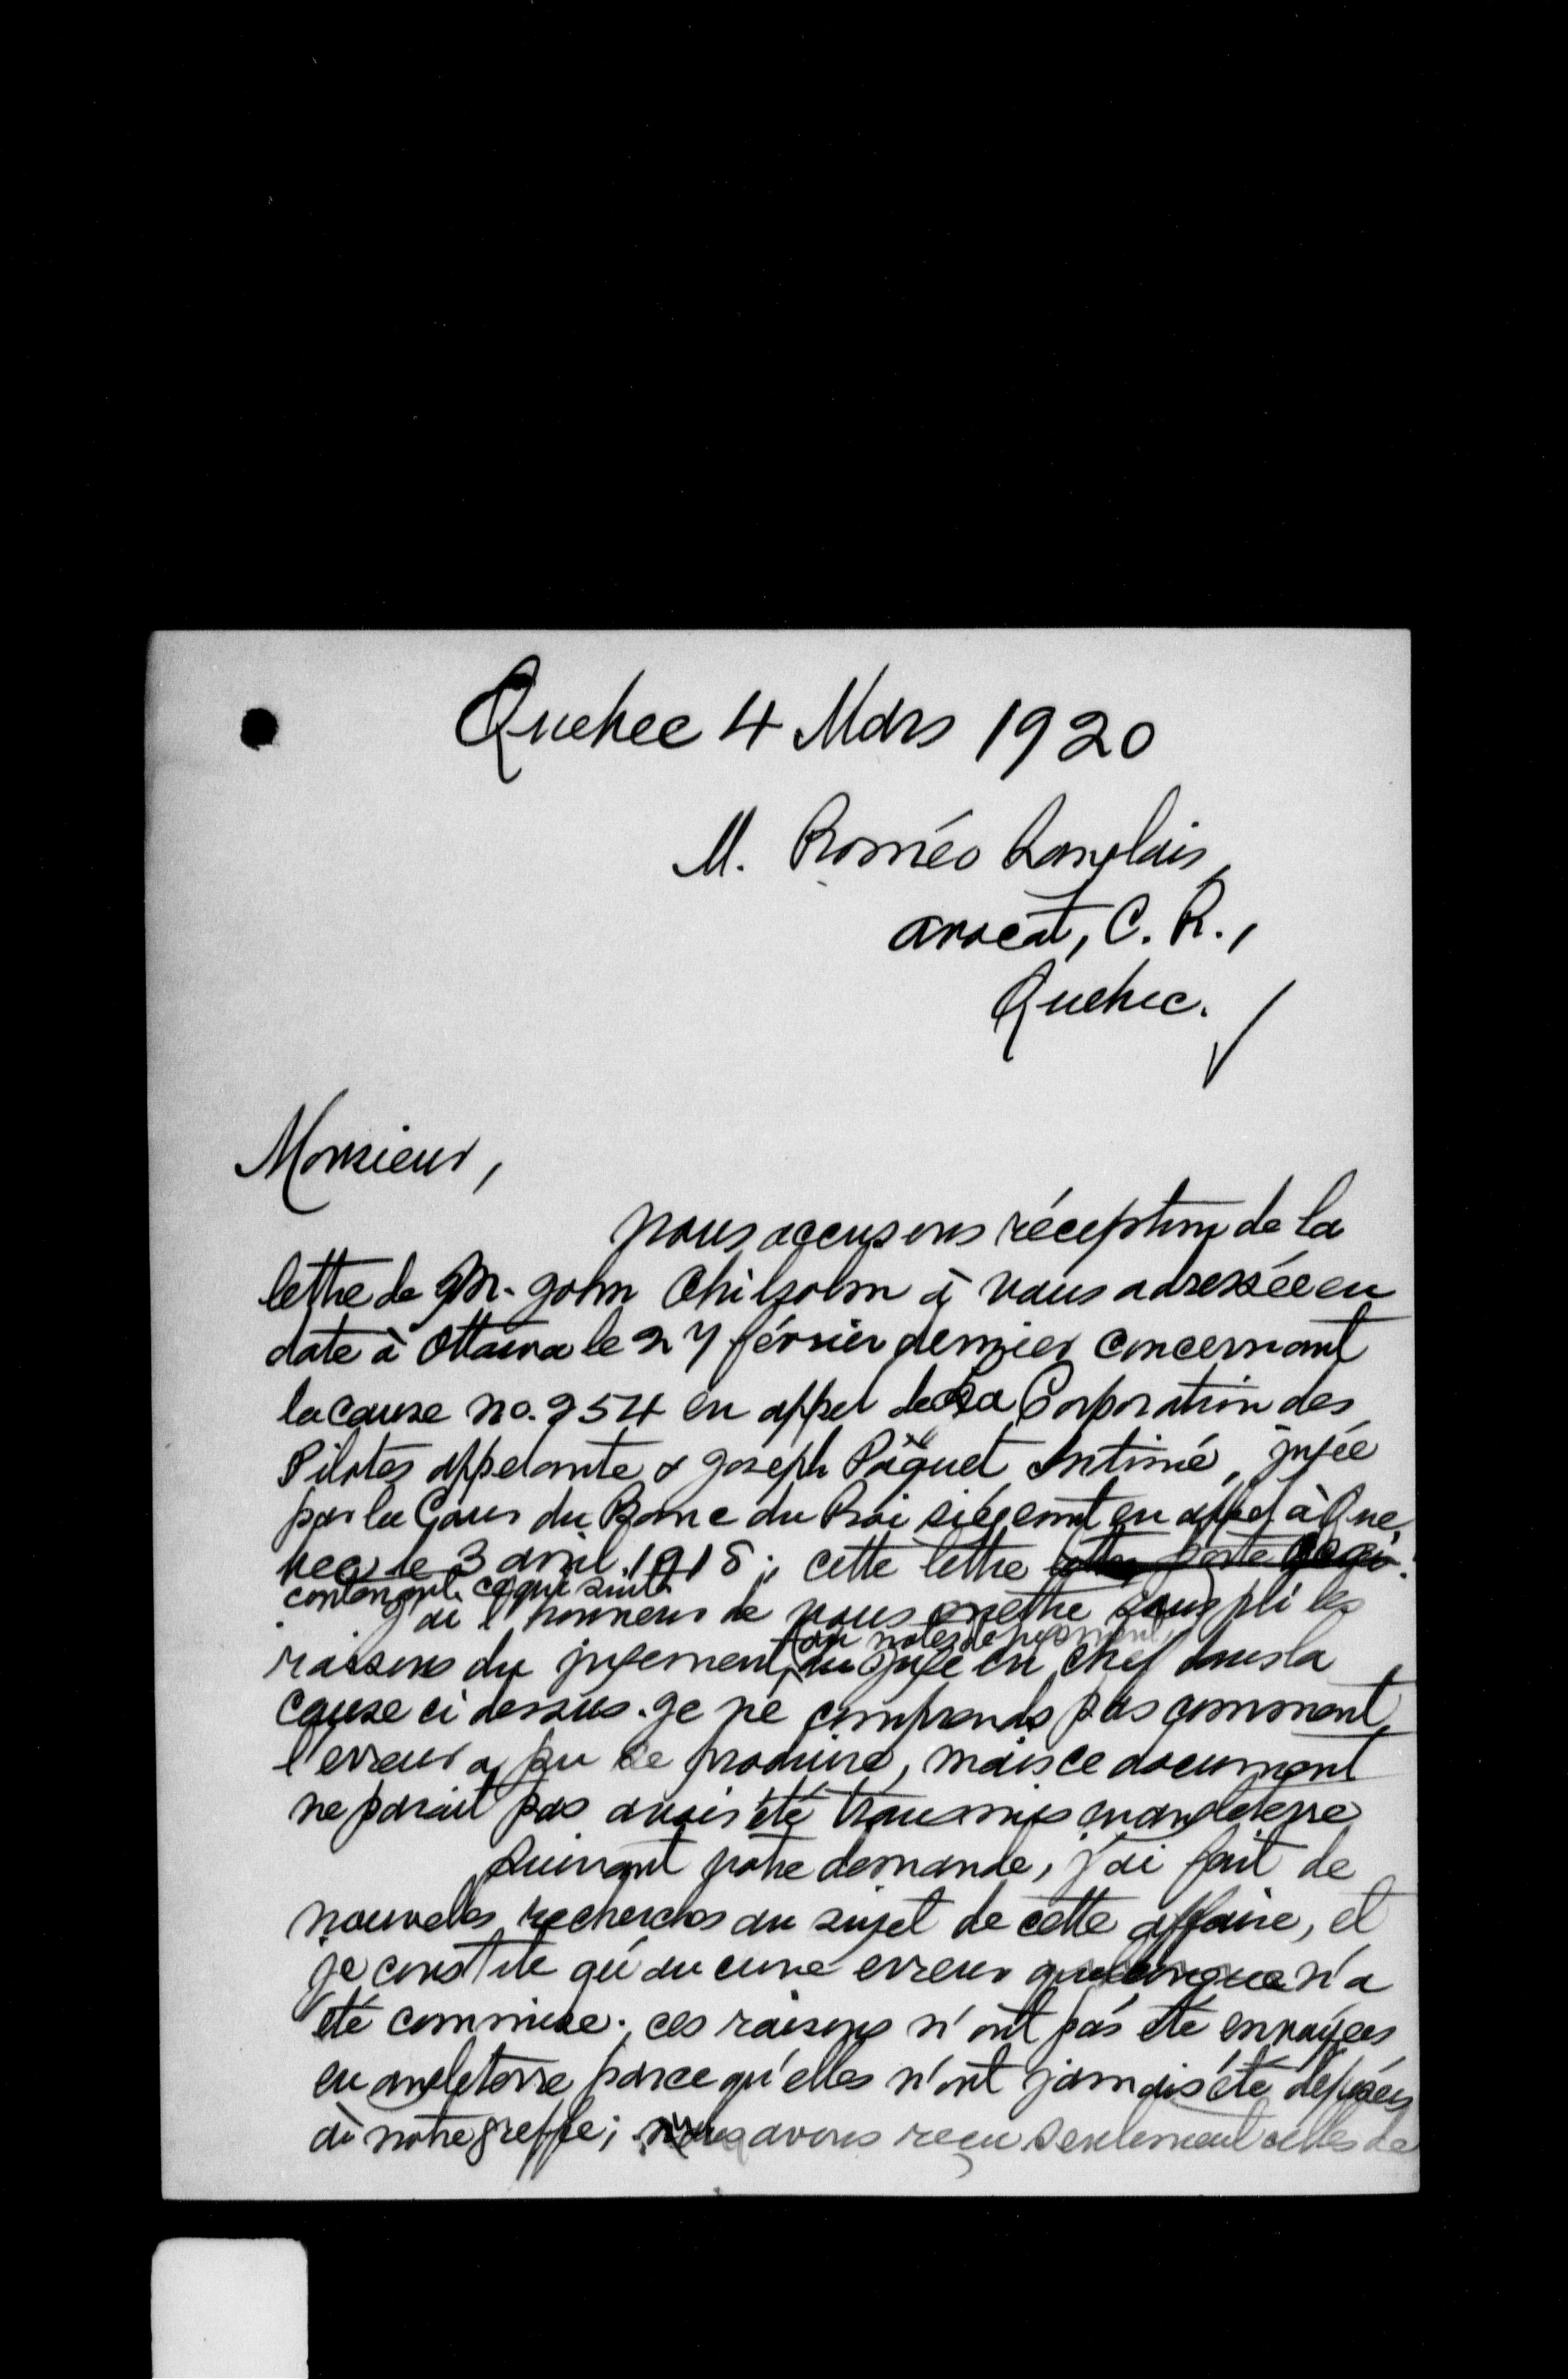 Quebec 4 Mars 1920
M. Roméo Langlais,
avocat, C. R.,
Quebec.
Monsieur,
nous accusons réception de la
lettre de M. John Chilsolm à vous adressée en
date à Ottawa le 27 février dernier concernant
la cause no. 954 en appel de La Corporation des
Pilotes appelante & Joseph Paquet Intimé, jugée
par la Cour du Banc du Roi siégeant en appel à Que,
bec, le 3 avril 1918; cette lettre porte ceci
contenant ce qui suit:
J'ai l'honneur de vous mettre sous pli les
ou notes de jugement
raisons du jugement, du Juge en chef dans la
cause ci dessus. Je ne comprends pas comment
l'erreur a pu se produire, mais ce document
ne parait pas avoir été transmis en angleterre
Suivant votre demande, j'ai fait de
nouvelles recherches au sujet de cette affaire, et
je constate qu'aucune erreur quelconque n'a
été commise; ces raisons n'ont pas été envoyées
en angleterre parce qu'elles n'ont jamais été déposées
à notre greffe; nous avons reçu seulement celles de